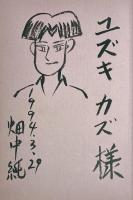 ユズキカズ様
1994.3.29
畑中純